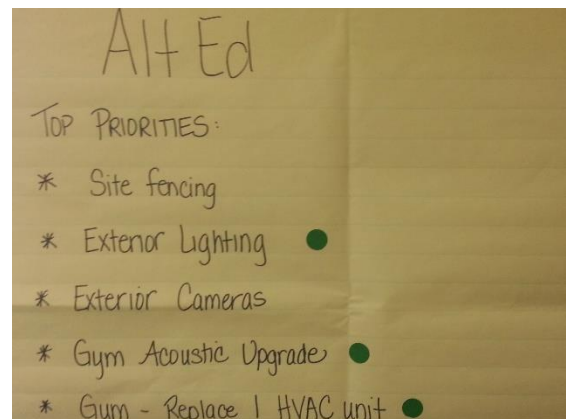 Alt Ed
TOP PRIORITIES:
* Site fencing
* Exterior Lighting
* Exterior Cameras
* Gym Acoustic Upgrade
* Gym - Replace 1 HVAC unit